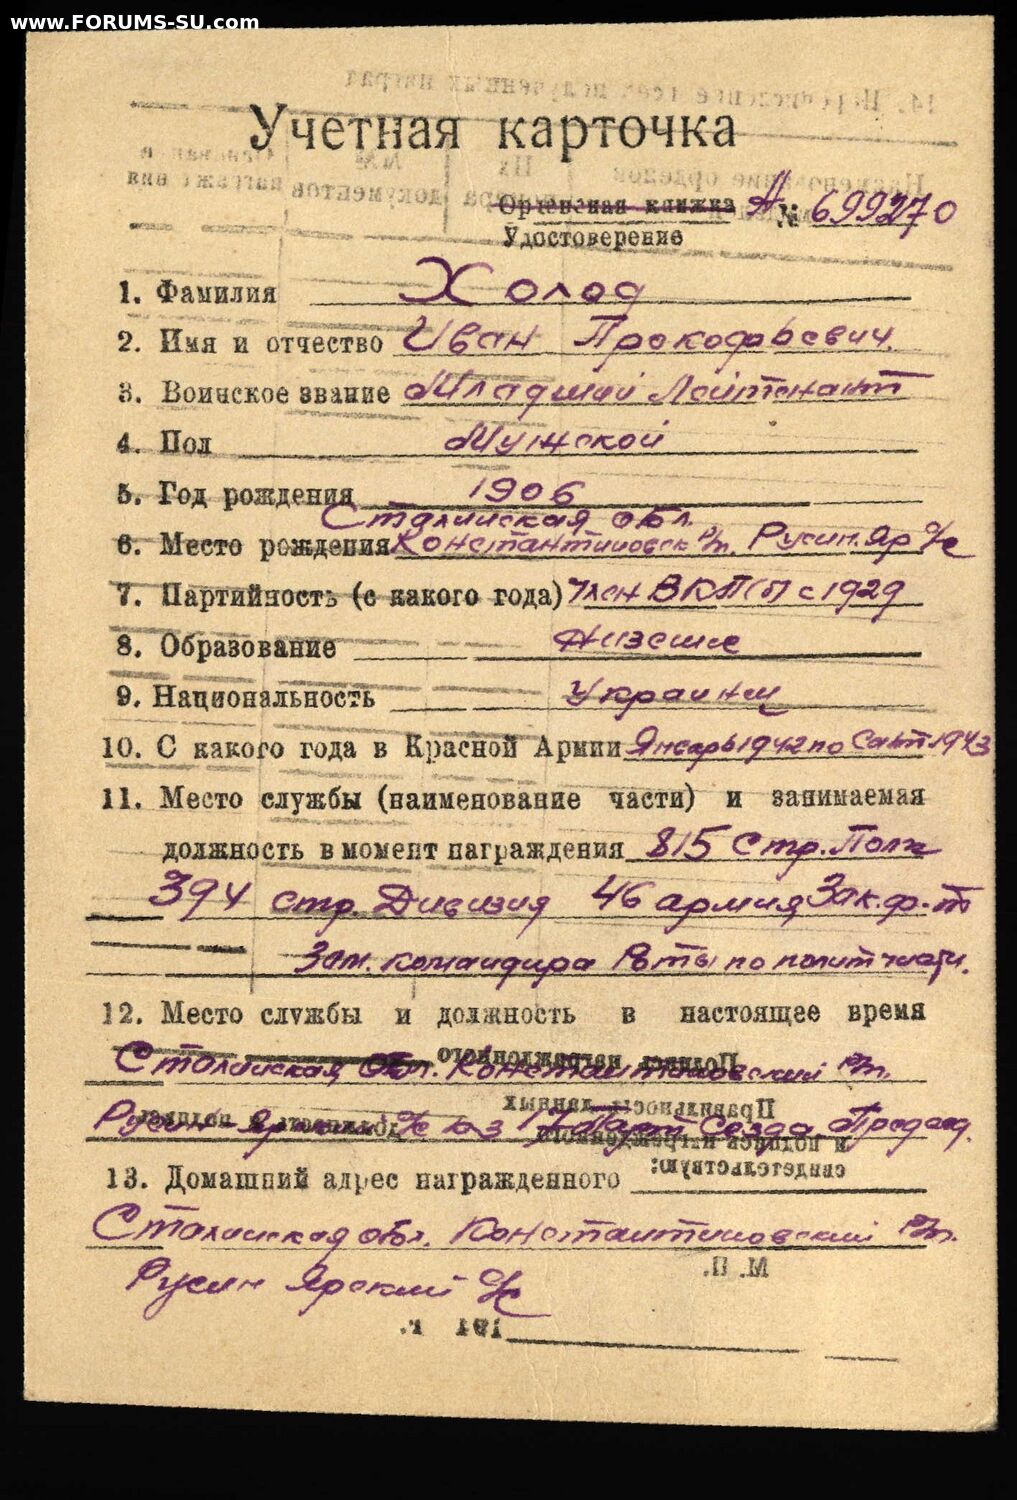 www.FORUMS-SU.com
14. Перечисление всех полученных наград
Учетная карточка
Орденская книжка А № 699270
Удостоверение
1. Фамилия Холод
2. Имя и отчество Иван Прокофьевич.
3. Воинское звание Младший Лейтенант
4. Пол Мужской
5. Год рождения 1906
Сталинская обл.
6. Место рождения Константиновск р/н. Русин. Яр с/с
7. Партийность (с какого года) Член ВКП(б) с 1929
8. Образование Низшие
9. Национальность Украинец
10. С какого года в Красной Армии Январь 1942 по Сент. 1943
11. Место службы (наименование части) и занимаемая
должность в момент награждения 815 Стр. Полк
394 стр. Дивизия 46 армия Зак. ф-т
Зам. командира Роты по политчасти.
12. Место службы и должность в настоящее время
Подпись награжденного
Сталинская Обл. Константиновский р/н.
Правильность данных
Русин-Ярский с/с 17 Парт Съезда Председ.
и подписи награжденного
свидетельствую:
13. Домашний адрес награжденного
Сталинская обл. Константиновский р/н.
М. П.
Русин Ярский с/с
194 г.